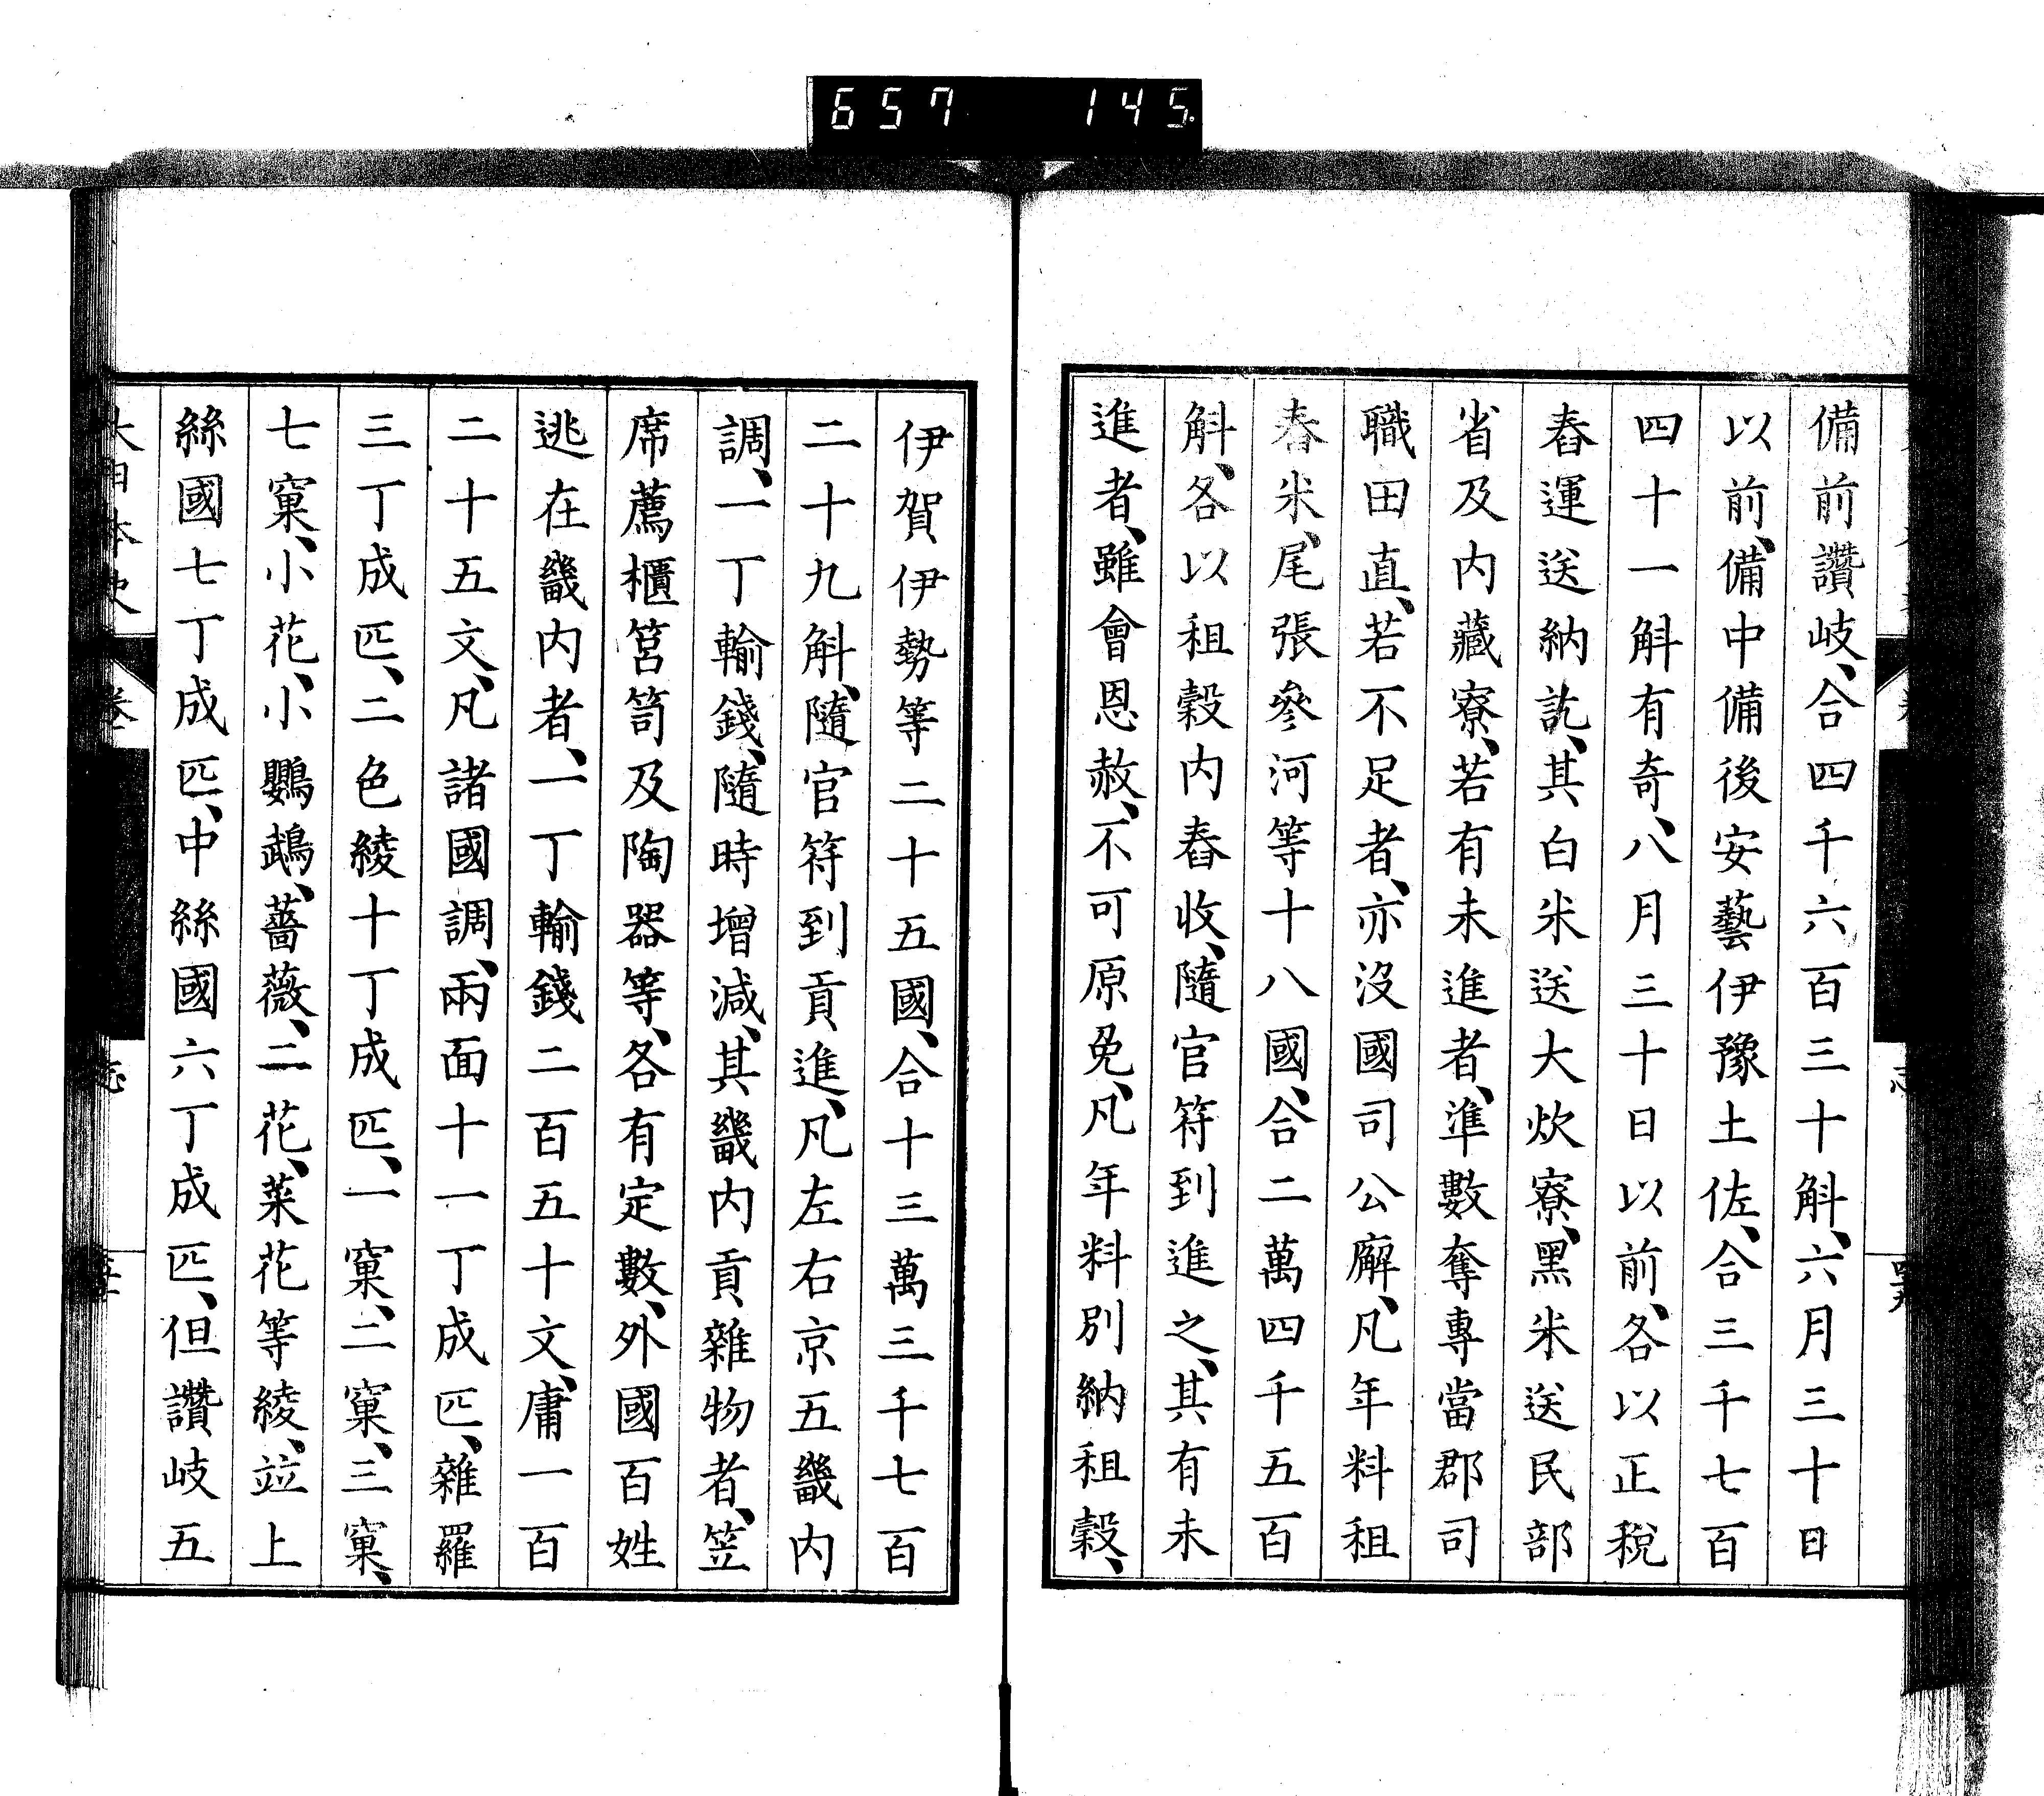 657 145
備前讚岐、合四千六百三十斛、六月三十日
以前、備中備後安藝伊豫土佐、合三千七百
四十一斛有奇、八月三十日以前、各以正稅
舂運送納訖、其白米送大炊寮、黑米送民部
省及内藏寮、若有未進者、準數奪專當郡司
職田直、若不足者、亦没國司公廨、凡年料租
舂米、尾張參河等十八國、合二萬四千五百
斛、各以租穀内舂收、隨官符到進之、其有未
進者、雖會恩赦、不可原免、凡年料別納租穀、
伊賀伊勢等二十五國、合十三萬三千七百
二十九斛、隨官符到貢進、凡左右京五畿内
調、一丁輸錢、隨時增減、其畿内貢雜物者、笠
席薦櫃筥笥及陶器等、各有定數、外國百姓
逃在畿内者、一丁輸錢二百五十文、庸一百
二十五文、凡諸國調、兩面十一丁成匹、雜羅
三丁成匹、二色綾十丁成匹、一窠、二窠、三窠、
七窠、小花、小鸚鵡、薔薇、二花、菜花等綾、竝上
絲國七丁成匹、中絲國六丁成匹、但讚岐五
大日本史 卷 志